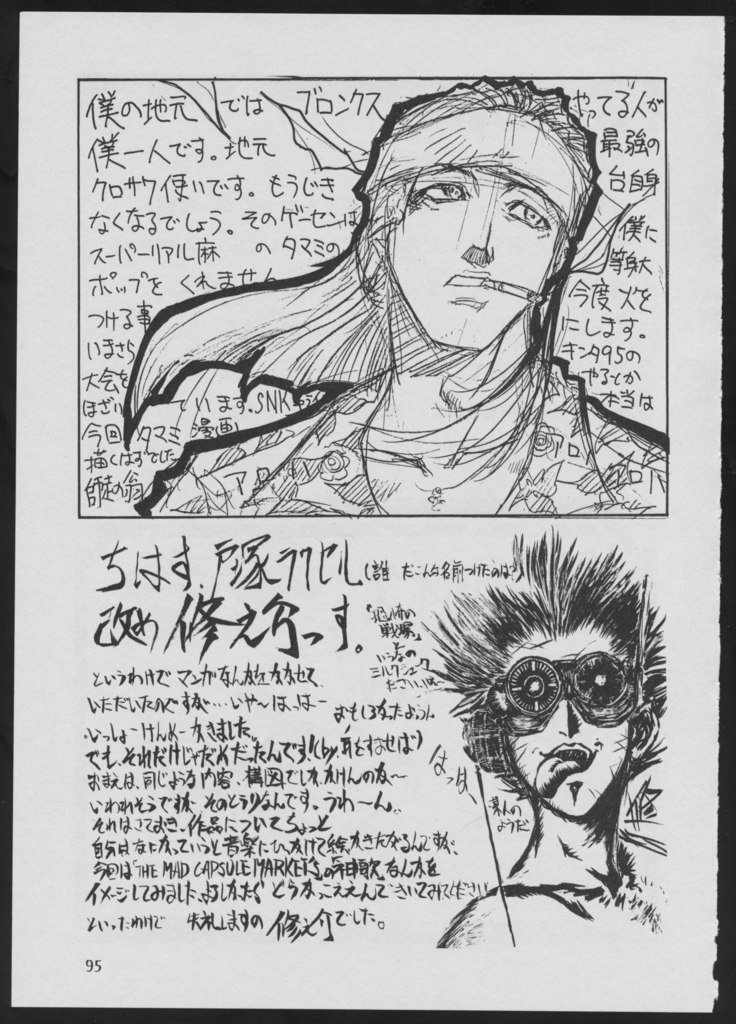 僕の地元では ブロンクス やってる人が
僕一人です。地元 最強の
クロサワ使いです。もうじき 台自身
なくなるでしょう。そのゲーセンは 僕に
スーパーリアル麻 のタマミの 等身大
ポップを くれません 今度 火を
つける事 にします。
いまさら キンタ95の
大会を やるとか
ほざい ています。SNK 本当は
今回 タマミ 漫画
描くはずでした
師徒の翁
ちはす、戸塚ラクセル(誰だこんな名前つけたのは?)
改め 修え介っす。
「恐怖の
戦場」
というわけで マンガなんかをかかせて
いただいたのですが…いや〜は、は〜
いっしょーけんめーかきました。
おもしろかったよぅぅ
でも、それだけじゃだめだったんです!(by,耳をすませば)
おまえは、同じような内容、構図でしかかけんのな〜
いわれそうですが そのとうりなんです。うわーん。
それはさておき、作品についてちょっと
自分はなにかっていうと音楽にひっかけて絵かきたがるんですが、
今回は「THE MAD CAPSULE MARKET'S」の「神歌」なんかを
イメージしてみました、よろしかったら どうか きいてみてください
といったわけで 失礼しますの 修え介でした。
はっは、
某人の
ようだ
95